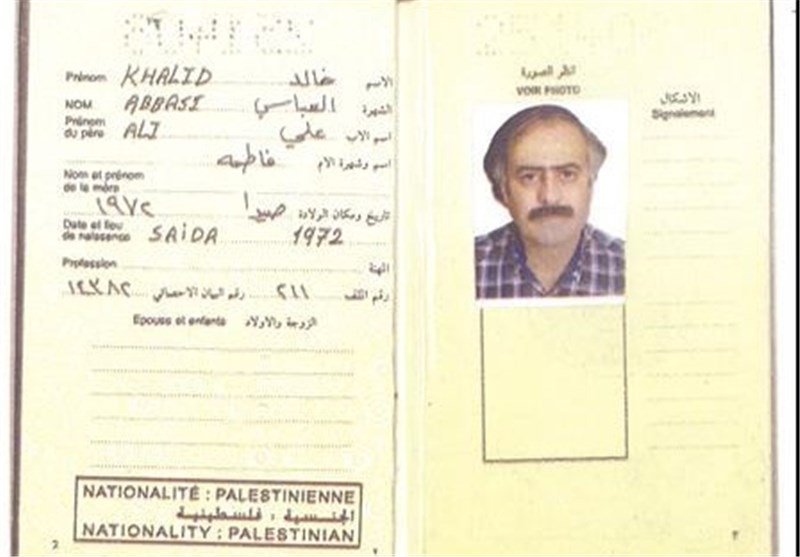 Prénom KHALID خالد الاسم
NOM ABBASI العباسي الشهرة
Prénom du père ALI علي اسم الاب
فاطمه اسم وشهرة الام
Nom et prénom
de la mère
١٩٧٢ صيدا تاريخ ومكان الولادة
Date et lieu
de naissance SAIDA 1972
Profession المهنة
١٤٣٨٢ رقم البيان الاحصائي ٢١١ رقم الملف
Epouse et enfants الزوجة والاولاد
NATIONALITÉ : PALESTINIENNE
الجنسية : فلسطينية
NATIONALITY : PALESTINIAN
2 ٢
انظر الصورة
VOIR PHOTO
الاشكال
Signalement
٣